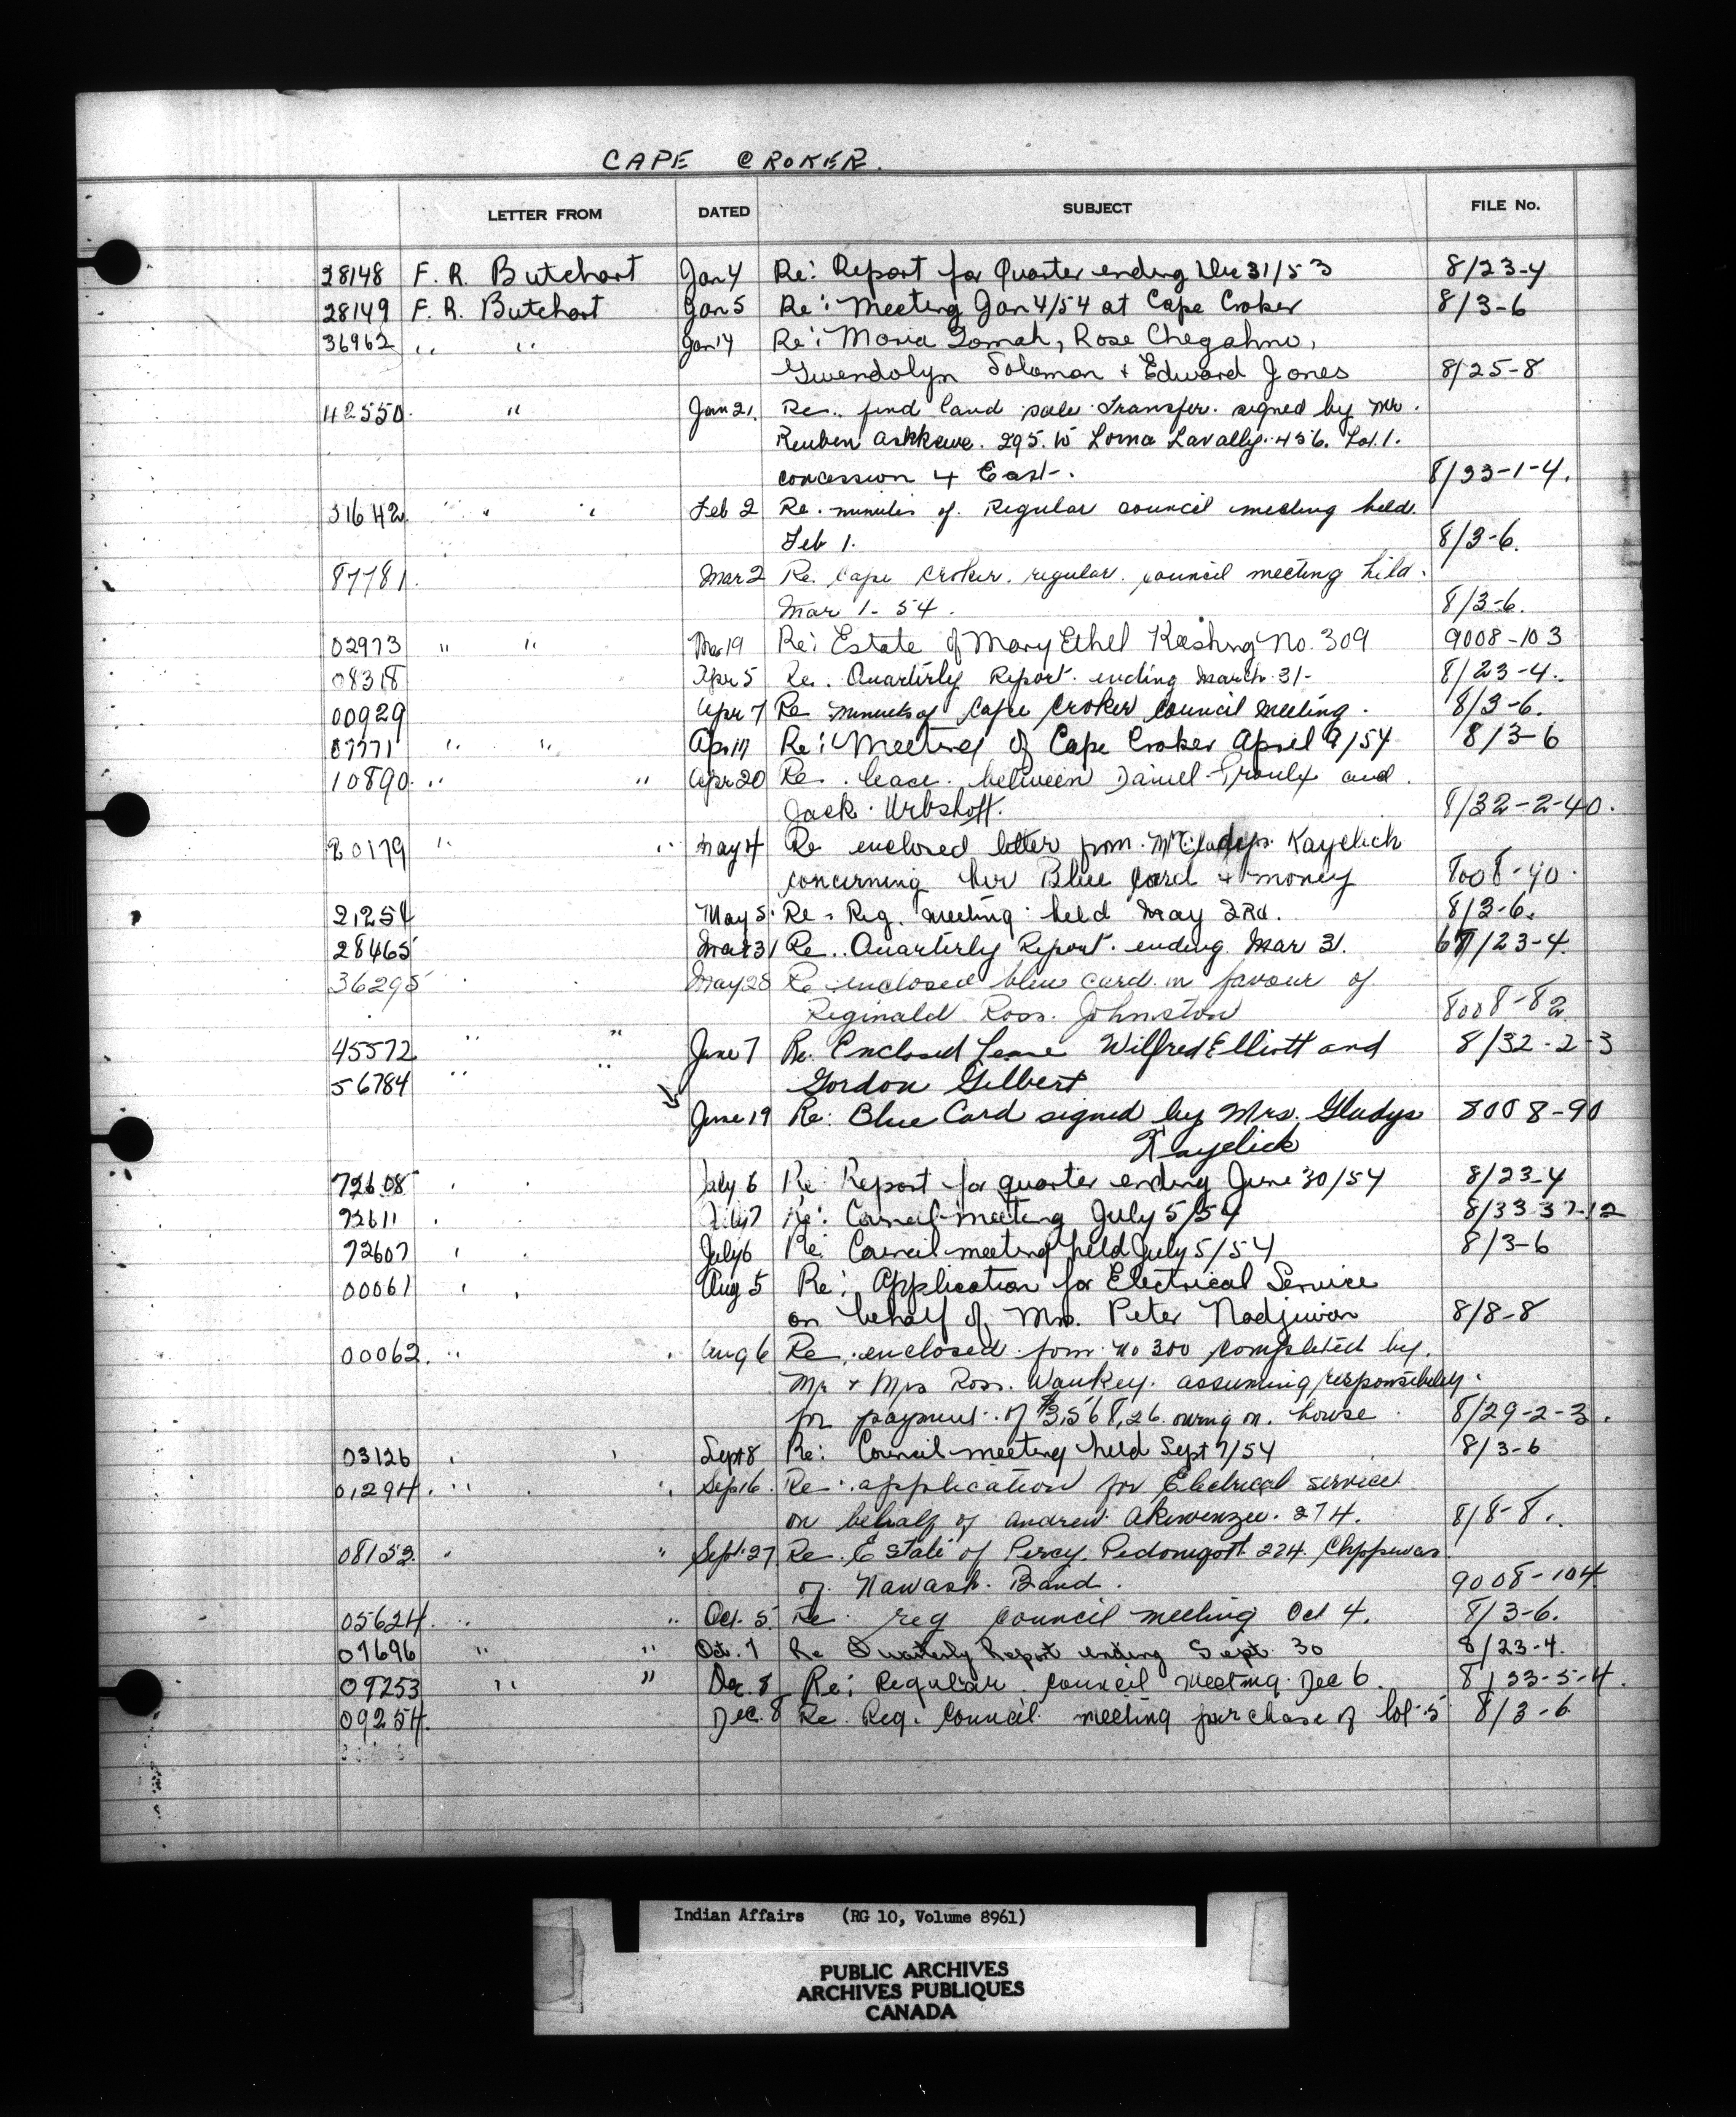 CAPE CROKER.
LETTER FROM DATED SUBJECT FILE No.
28148 F. R. Butchart Jan 4 Re: Report for Quarter ending Dec 31/53 8/23-4
28149 F. R. Butchart Jan 5 Re: Meeting Jan 4/54 at Cape Croker 8/3-6
36962 " " Jan 14 Re: Maria Tomah, Rose Chegahno,
Gwendolyn Solomon + Edward Jones 8/25-8
42550. " Jan 21. Re. find land sale Transfer. signed by Mr.
Reuben Ashkewe. 295. to Lorna Lavally. 456. Lot. 1.
concession 4 East. 8/33-1-4.
51642. " " " Feb 2 Re. minutes of Regular council meeting held.
Feb 1. 8/3-6.
87781. Mar 2 Re. Cape Croker. regular. council meeting held.
Mar 1-54. 8/3-6.
02973 " " Mar 19 Re: Estate of Mary Ethel Keeshig No. 309 9008-103
08318 Apr 5 Re. Quarterly Report. ending March. 31- 8/23-4.
00929 Apr 7 Re minutes of Cape Croker Council Meeting. 8/3-6.
07771 " " Apr 14 Re: Meeting of Cape Croker April 9/54 8/3-6
10890. " " Apr 20 Re. lease. between Daniel Proulx and.
Jack. Urbshott. 8/32-2-40.
20179 " " May 4 Re enclosed letter from. Mrs Gladys. Kayelick
concerning her Blue Card + money 8008-90.
21254 May 5. Re. Reg. Meeting held May 3Rd. 8/3-6.
28465 Mar 31 Re.. Quarterly Report. ending. Mar 31. /23-4.
36295 May 28 Re enclosed blue card in favour of
Reginald Ross. Johnston 8008-82.
45572 " " June 7 Re. Enclosed Lease Wilfred Elliott and 8/32-2-3
56784 " " Gordon Gilbert
June 19 Re: Blue Card signed by Mrs. Gladys 8008-90
Kayelick
72608 July 6 Re: Report for quarter ending June 30/54 8/23-4
72611 July 7 Re: Council meeting July 5/54 8/33-37-12
72607 July 6 Re: Council meeting held July 5/54 8/3-6
00061 Aug 5 Re: Application for Electrical Service
on behalf of Mrs. Peter Nadjiwon 8/8-8
00062. " Aug 6 Re. enclosed form no 300 completed by.
Mr + Mrs Ross. Waukey. assuming responsibility.
for payment. of $3,568.26. owing on. house. 8/29-2-3.
03126 Sept 8 Re: Council meeting held Sept 7/54 8/3-6
01294. " " Sep 16. Re. application for Electrical service
on behalf of Andrew Akiwenzee. 274. 8/8-8.
08152. " " Sept. 27 Re. Estate of Percy. Pedoniqott. 224. Chippewas
of. Nawash. Band. 9008-104
05624. " " Oct. 5 Re. reg council meeting Oct 4. 8/3-6.
07696 " " Oct. 7 Re Quarterly Report ending Sept. 30 8/23-4.
09253 " " Dec. 8 Re: Regular. council meeting. Dec 6. 8/33-5-4.
09254. Dec. 8 Re. Reg. Council meeting purchase of lot 5 8/3-6
Indian Affairs (RG 10, Volume 8961)
PUBLIC ARCHIVES
ARCHIVES PUBLIQUES
CANADA